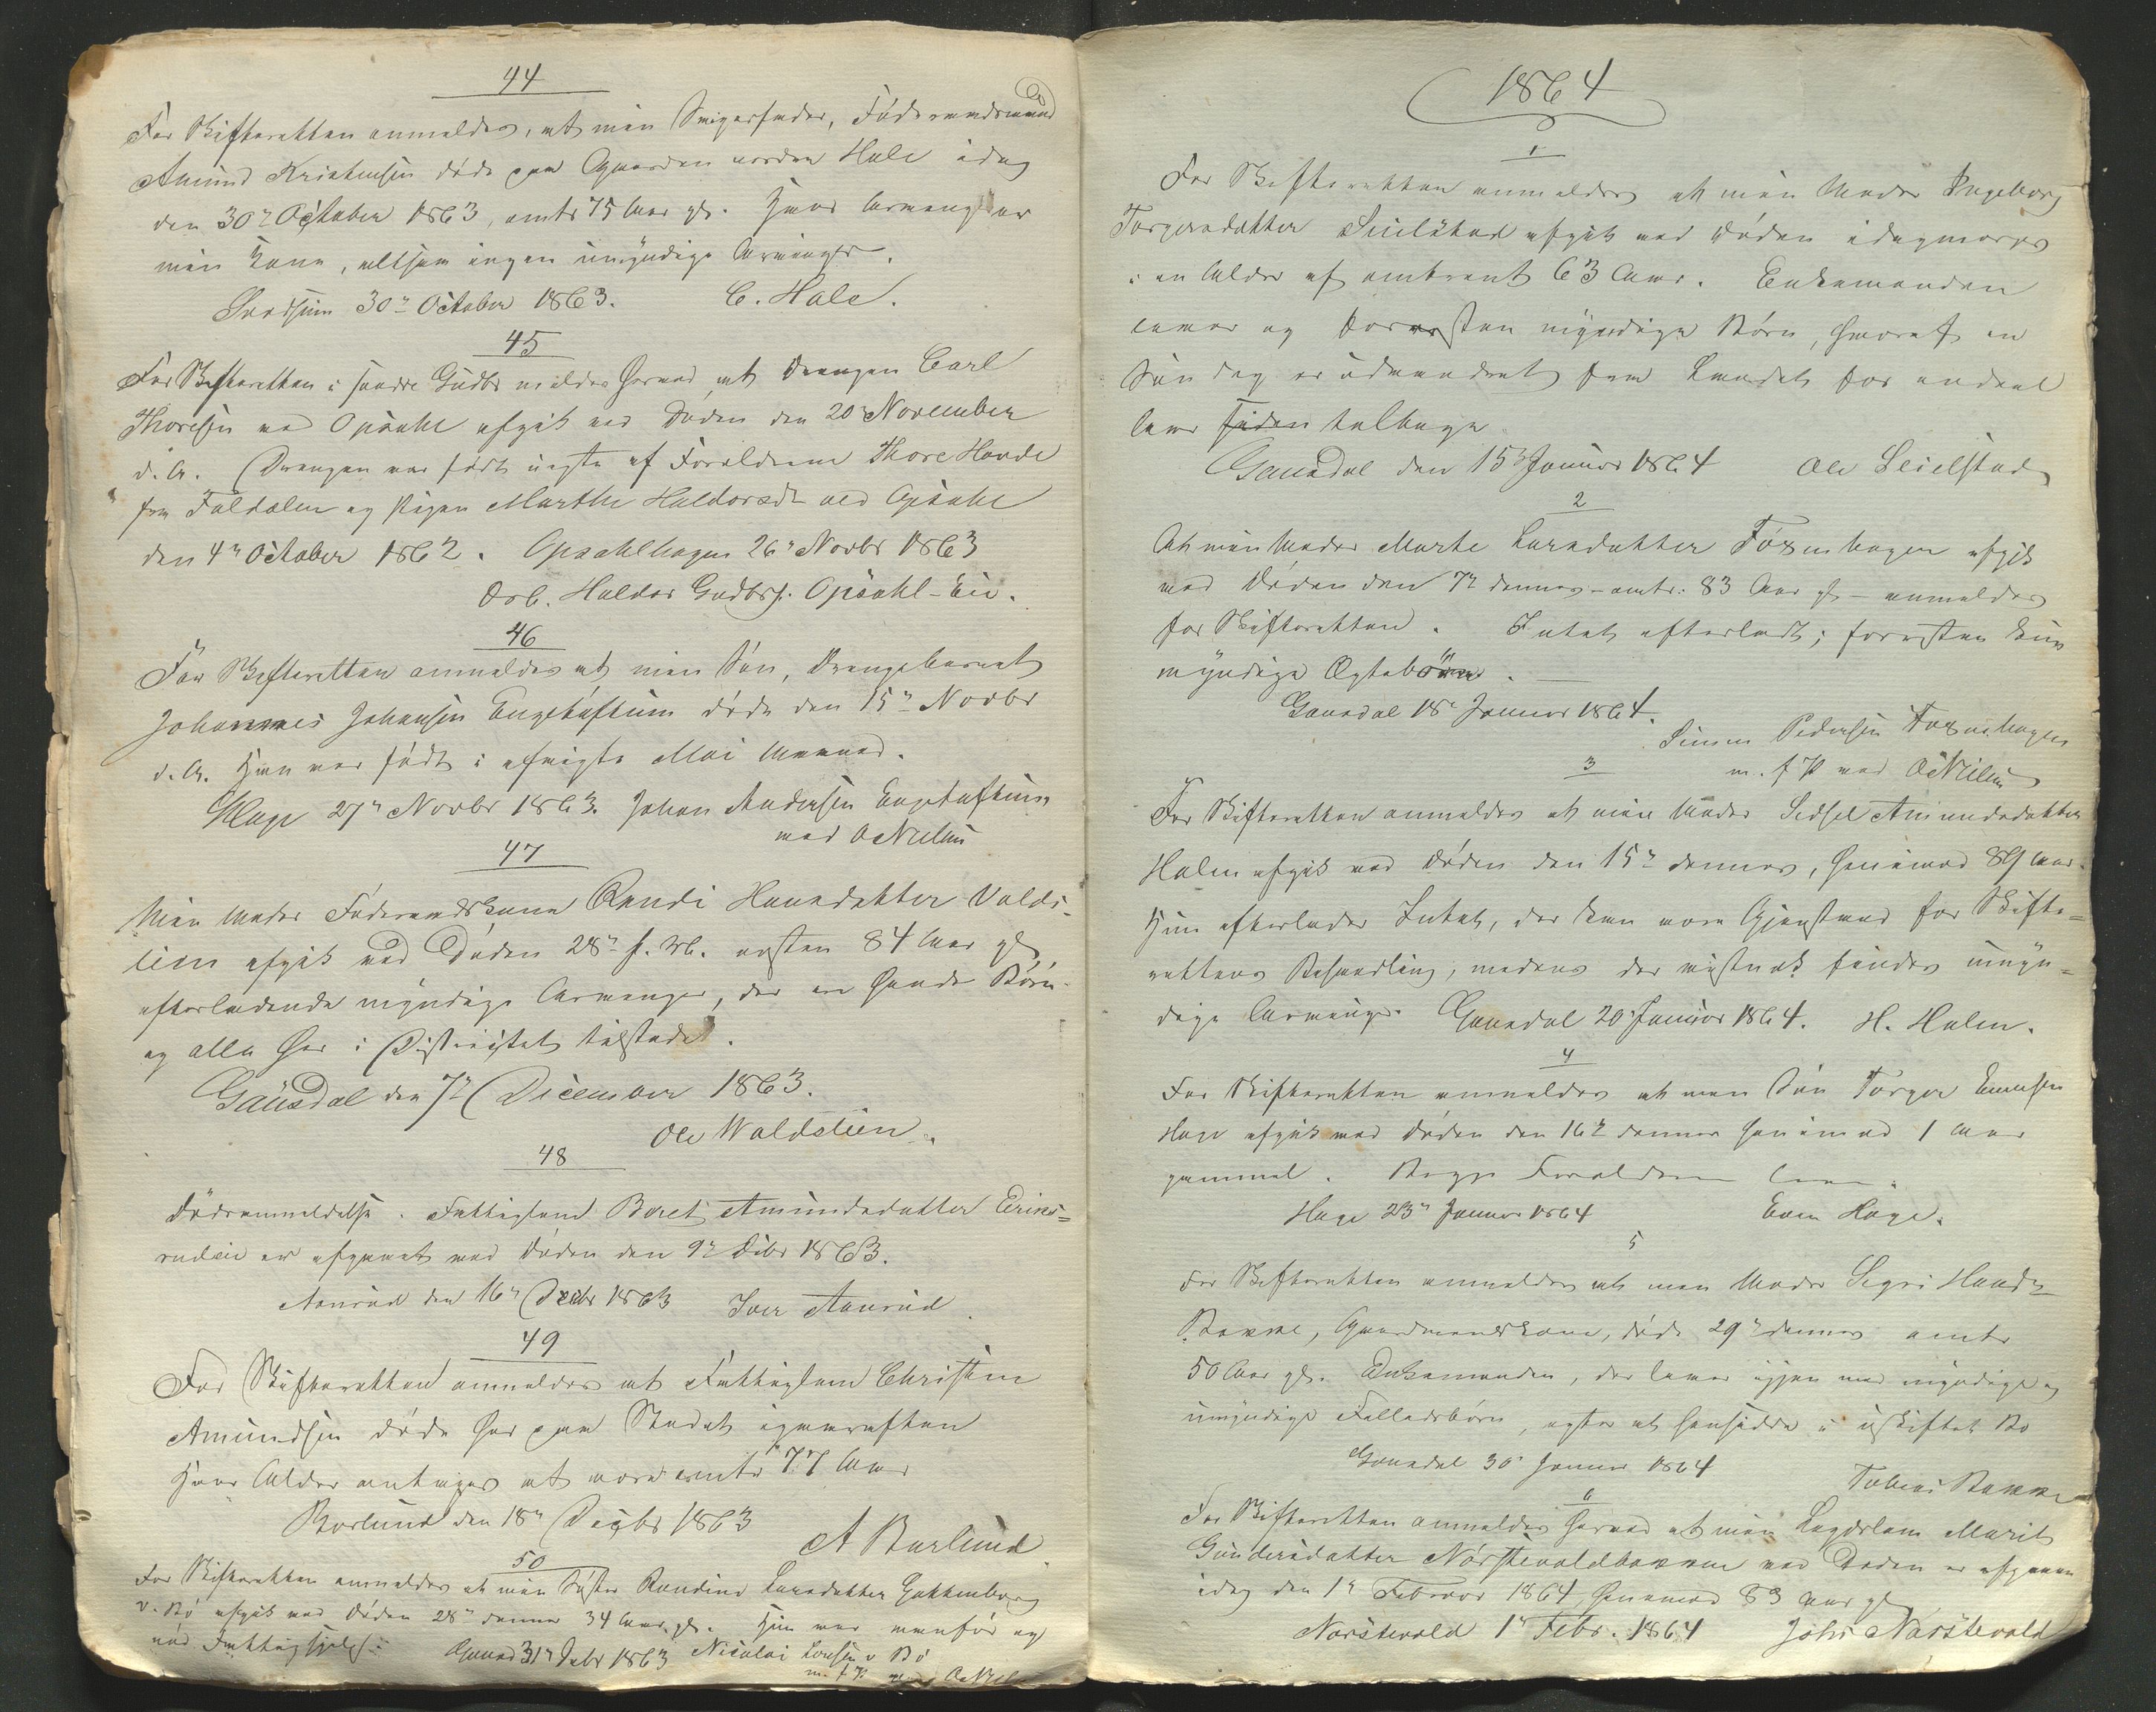 44
For Skifteretten anmeldes, at min Svigerfader, Föderaadsmand
Amund Kristensen döde paa Gaarden nordre Hole idag
den 30te October 1863, omtr 75 Aar gl. Hans Arving er
min Kone, altsaa ingen umyndige Arvinger.
30te October 1863. C. Hole.
45
For Skifteretten i söndre Gudbr meldes herved at Drengen Carl
Thoresen ved Opsahl afgik ved Döden den 20de November
d. A. Drengen var födt uægte af Forældrene Thore Hovde
fra Foldalen og Pigen Marthe Haldorsdr ved Opsahl
den 4de October 1862. Opsahlhagen 26de Novbr 1863
Haldor Gudbrs. Opsahl-Eie.
46
For Skifteretten anmeldes at min Sön, Drengebarnet
Johannes Johansen Engehaftuim döde den 15de Novbr
d. A. Han var födt i afvigte Mai Maaned.
Hage 27de Novbr 1863. Johan Andersen Engehaftuim
ved O Nilsen
47
Min Moder Föderaadskone Randi Hansdatter Valds-
lien afgik ved Döden 28de f. M. næsten 84 Aar gl,
efterladende myndige Arvinger, der ere hendes Börn
og alle her i Districtet tilstede.
Gausdal den 7de December 1863.
Ole Waldslien.
48
Dödsanmeldelse. Fattiglem Boret Amundsdatter Eriks-
rudeie er afgaaet ved Döden den 9de Dcbr 1863.
Aanrud den 16de Decbr 1863 Iver Aanrud
49
For Skifteretten anmeldes at Fattiglem Christen
Amundsen döde her paa Stedet igaaraften
Hans Alder antages at være omtr 77 Aar
Borlund den 18de Decbr 1863
A Burlund
50
For Skifteretten anmeldes at min Söster Rondine Larsdatter
v. Bö afgik ved Döden 28de dennes 34 Aar gl. Hun var vanför og
nöd Fattighjelp. Gausd 31te Decbr 1863 Nicolai Larsen v Bö
m. f. P.
1864
1
For Skifteretten anmeldes at min Moder Ingeborg
Torgersdatter Seielstad afgik ved Döden idagmorges
i en Alder af omtrent 63 Aar. Enkemanden
lever og foruden myndige Börn, hvoraf en
Sön dog er udvandret fra Landet for endeel
Aar siden tilbage.
Gausdal den 15de Januar 1864 Ole Seielstad
2
At min Moder Marte Larsdatter Foxenhagen afgik
ved Döden den 7de dennes - omtr. 83 Aar gl - anmeldes
for Skifteretten. Intet efterladt; forresten kun
myndige Ægtebörn.
Gausdal 18de Januar 1864.
Simen Pedersen Foxenhagen
m. f P ved O Nilsen
3
For Skifteretten anmeldes at min Moder Sidsel Amundsdatter
Holm afgik ved Döden den 15de dennes, henimod 89 Aar.
Hun efterlader Intet, der kan være Gjenstand for Skifte-
rettens Behandling, medens der vistnok findes umyn-
dige Arvinger. Gausdal 20de Januar 1864. H. Holm.
4
For Skifteretten anmeldes at min Sön Torger Evensen
Hage afgik ved Döden den 16de dennes henimod 1 Aar
gammel. Begge Forældrene lever.
Hage 23de Januar 1864 Even Hage.
5
For Skifteretten anmeldes at min Moder Sigri Hansdr
Bakke, Gaardmandskone, döde 29de dennes omtr
50 Aar gl. Enkemanden, der lever igjen med myndige og
umyndige Fælledsbörn, agter at hensidde i uskiftet Bo
Gausdal 30 Januar 1864
Tobias Bakke
6
For Skifteretten anmeldes herved at min Lægdslem Marit
Gundersdatter Nörstevoldbakken ved Döden er afgaaen
idag den 1te Februar 1864, henimod 83 Aar gl
Norstevold 1te Febr. 1864 Johs Nörstevold